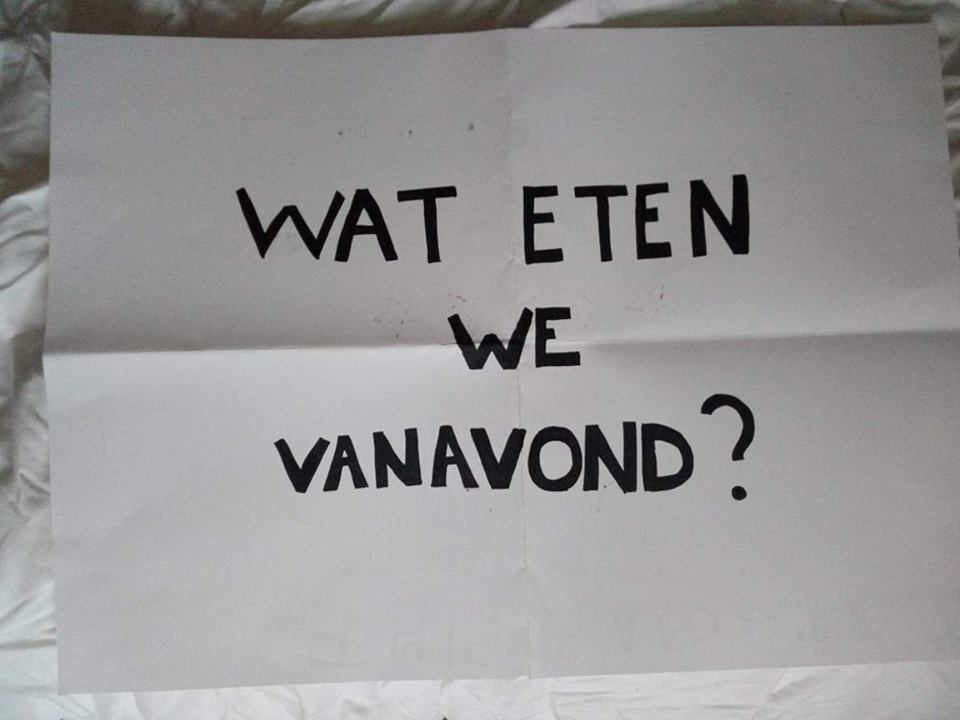 WAT ETEN
WE
VANAVOND?